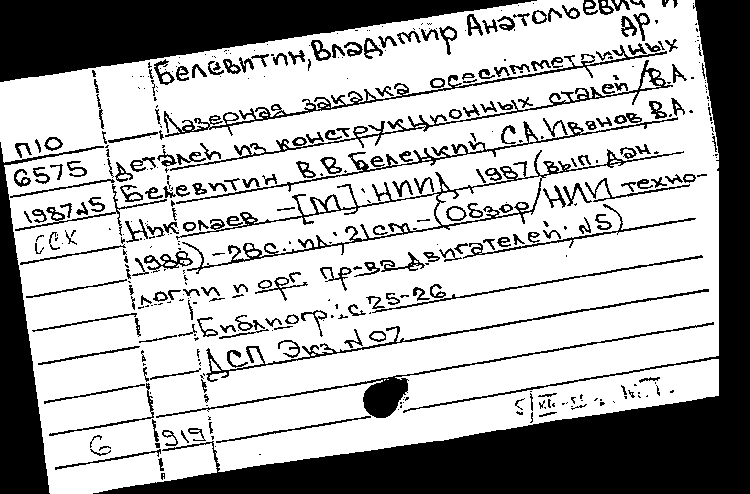 Белевитин, Владимир Анатольевич и
др.
Лазерная закалка осесимметричных
П10
деталей из конструкционных сталей / В.А.
6575
Белевитин, В.В. Белецкий, С.А. Иванов, В.А.
1987 N5
Николаев. - [М]: НИИД, 1987 (вып. дан.
ССК
1988) - 26с.: ил.; 21см. - (Обзор / НИИ техно-
логии и орг. пр-ва двигателей; N5)
Библиогр.: с. 25-26.
ДСП Экз. N 07
6 919